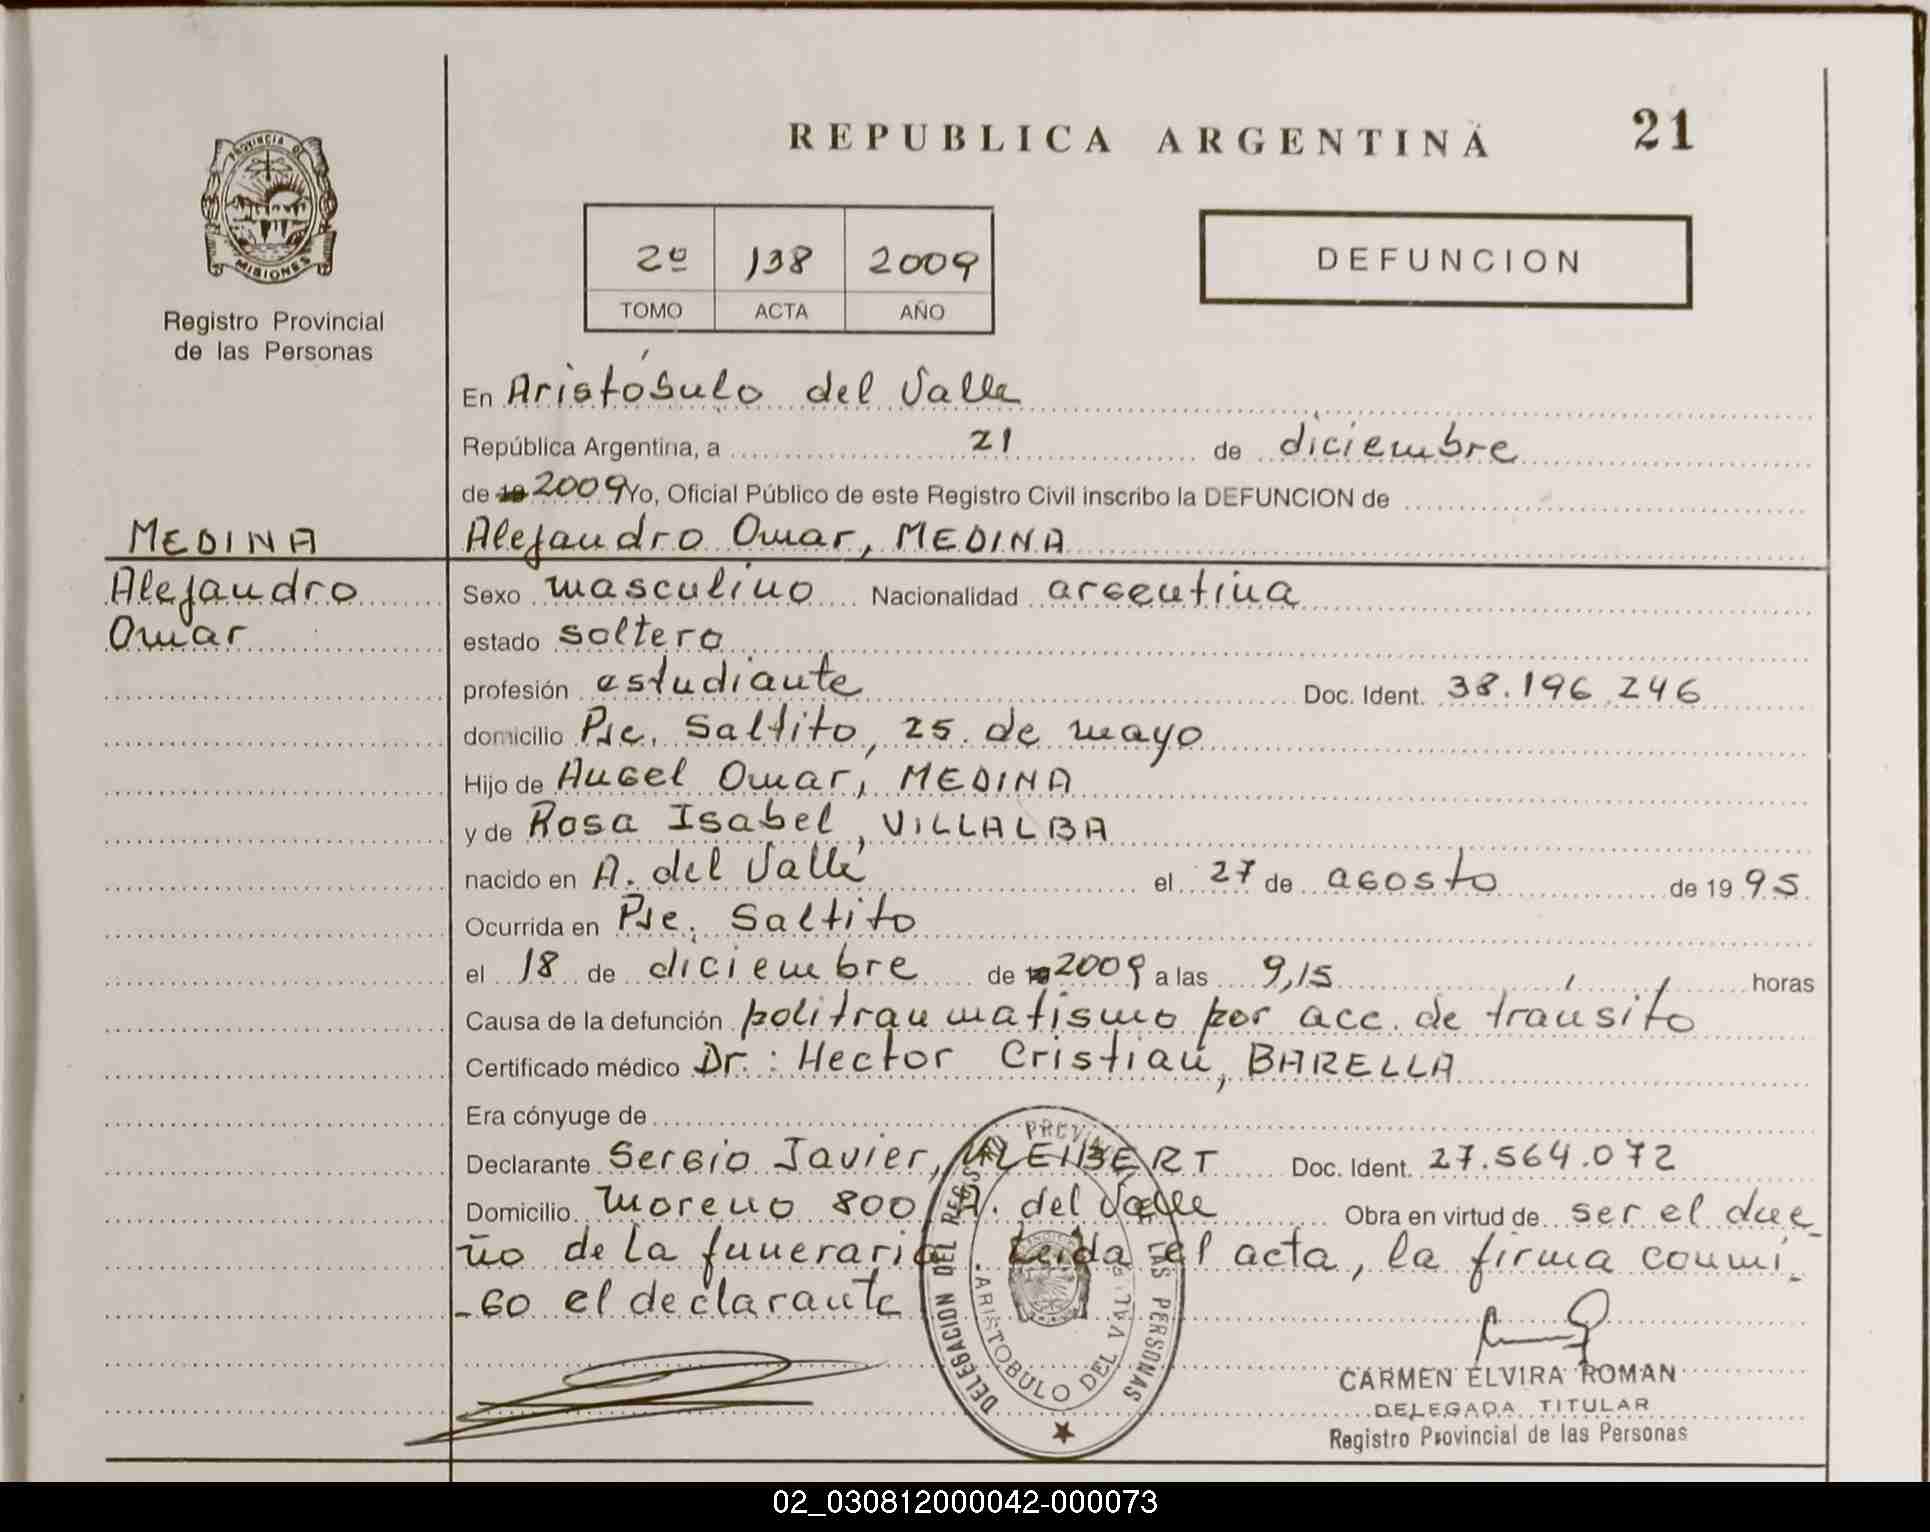 REPUBLICA ARGENTINA 21
PROVINCIA DE
MISIONES
Registro Provincial
de las Personas
2º 138 2009
TOMO ACTA AÑO
DEFUNCION
En Aristóbulo del Valle
República Argentina, a 21 de diciembre
de 19 2009 Yo, Oficial Público de este Registro Civil inscribo la DEFUNCION de
MEDINA
Alejandro Omar, MEDINA
Alejandro
Omar
Sexo masculino Nacionalidad argentina
estado soltero
profesión estudiante Doc. Ident. 38.196.246
domicilio Pje. Saltito, 25 de mayo
Hijo de Angel Omar, MEDINA
y de Rosa Isabel, VILLALBA
nacido en A. del Valle el 27 de agosto de 19 95
Ocurrida en Pje. Saltito
el 18 de diciembre de 19 2009 a las 9,15 horas
Causa de la defunción politraumatismo por acc. de tránsito
Certificado médico Dr.: Hector Cristian, BARELLA
Era cónyuge de
Declarante Sergio Javier, Doc. Ident. 27.564.072
Domicilio Moreno 800 A. del Valle Obra en virtud de ser el due-
ño de la funeraria. Leida el acta, la firma conmi-
-go el declarante
DELEGACION DEL REGIS PROVINCIAL LAS PERSONAS
ARISTOBULO DEL VALLE
CARMEN ELVIRA ROMAN
DELEGADA TITULAR
Registro Provincial de las Personas
02_030812000042-000073